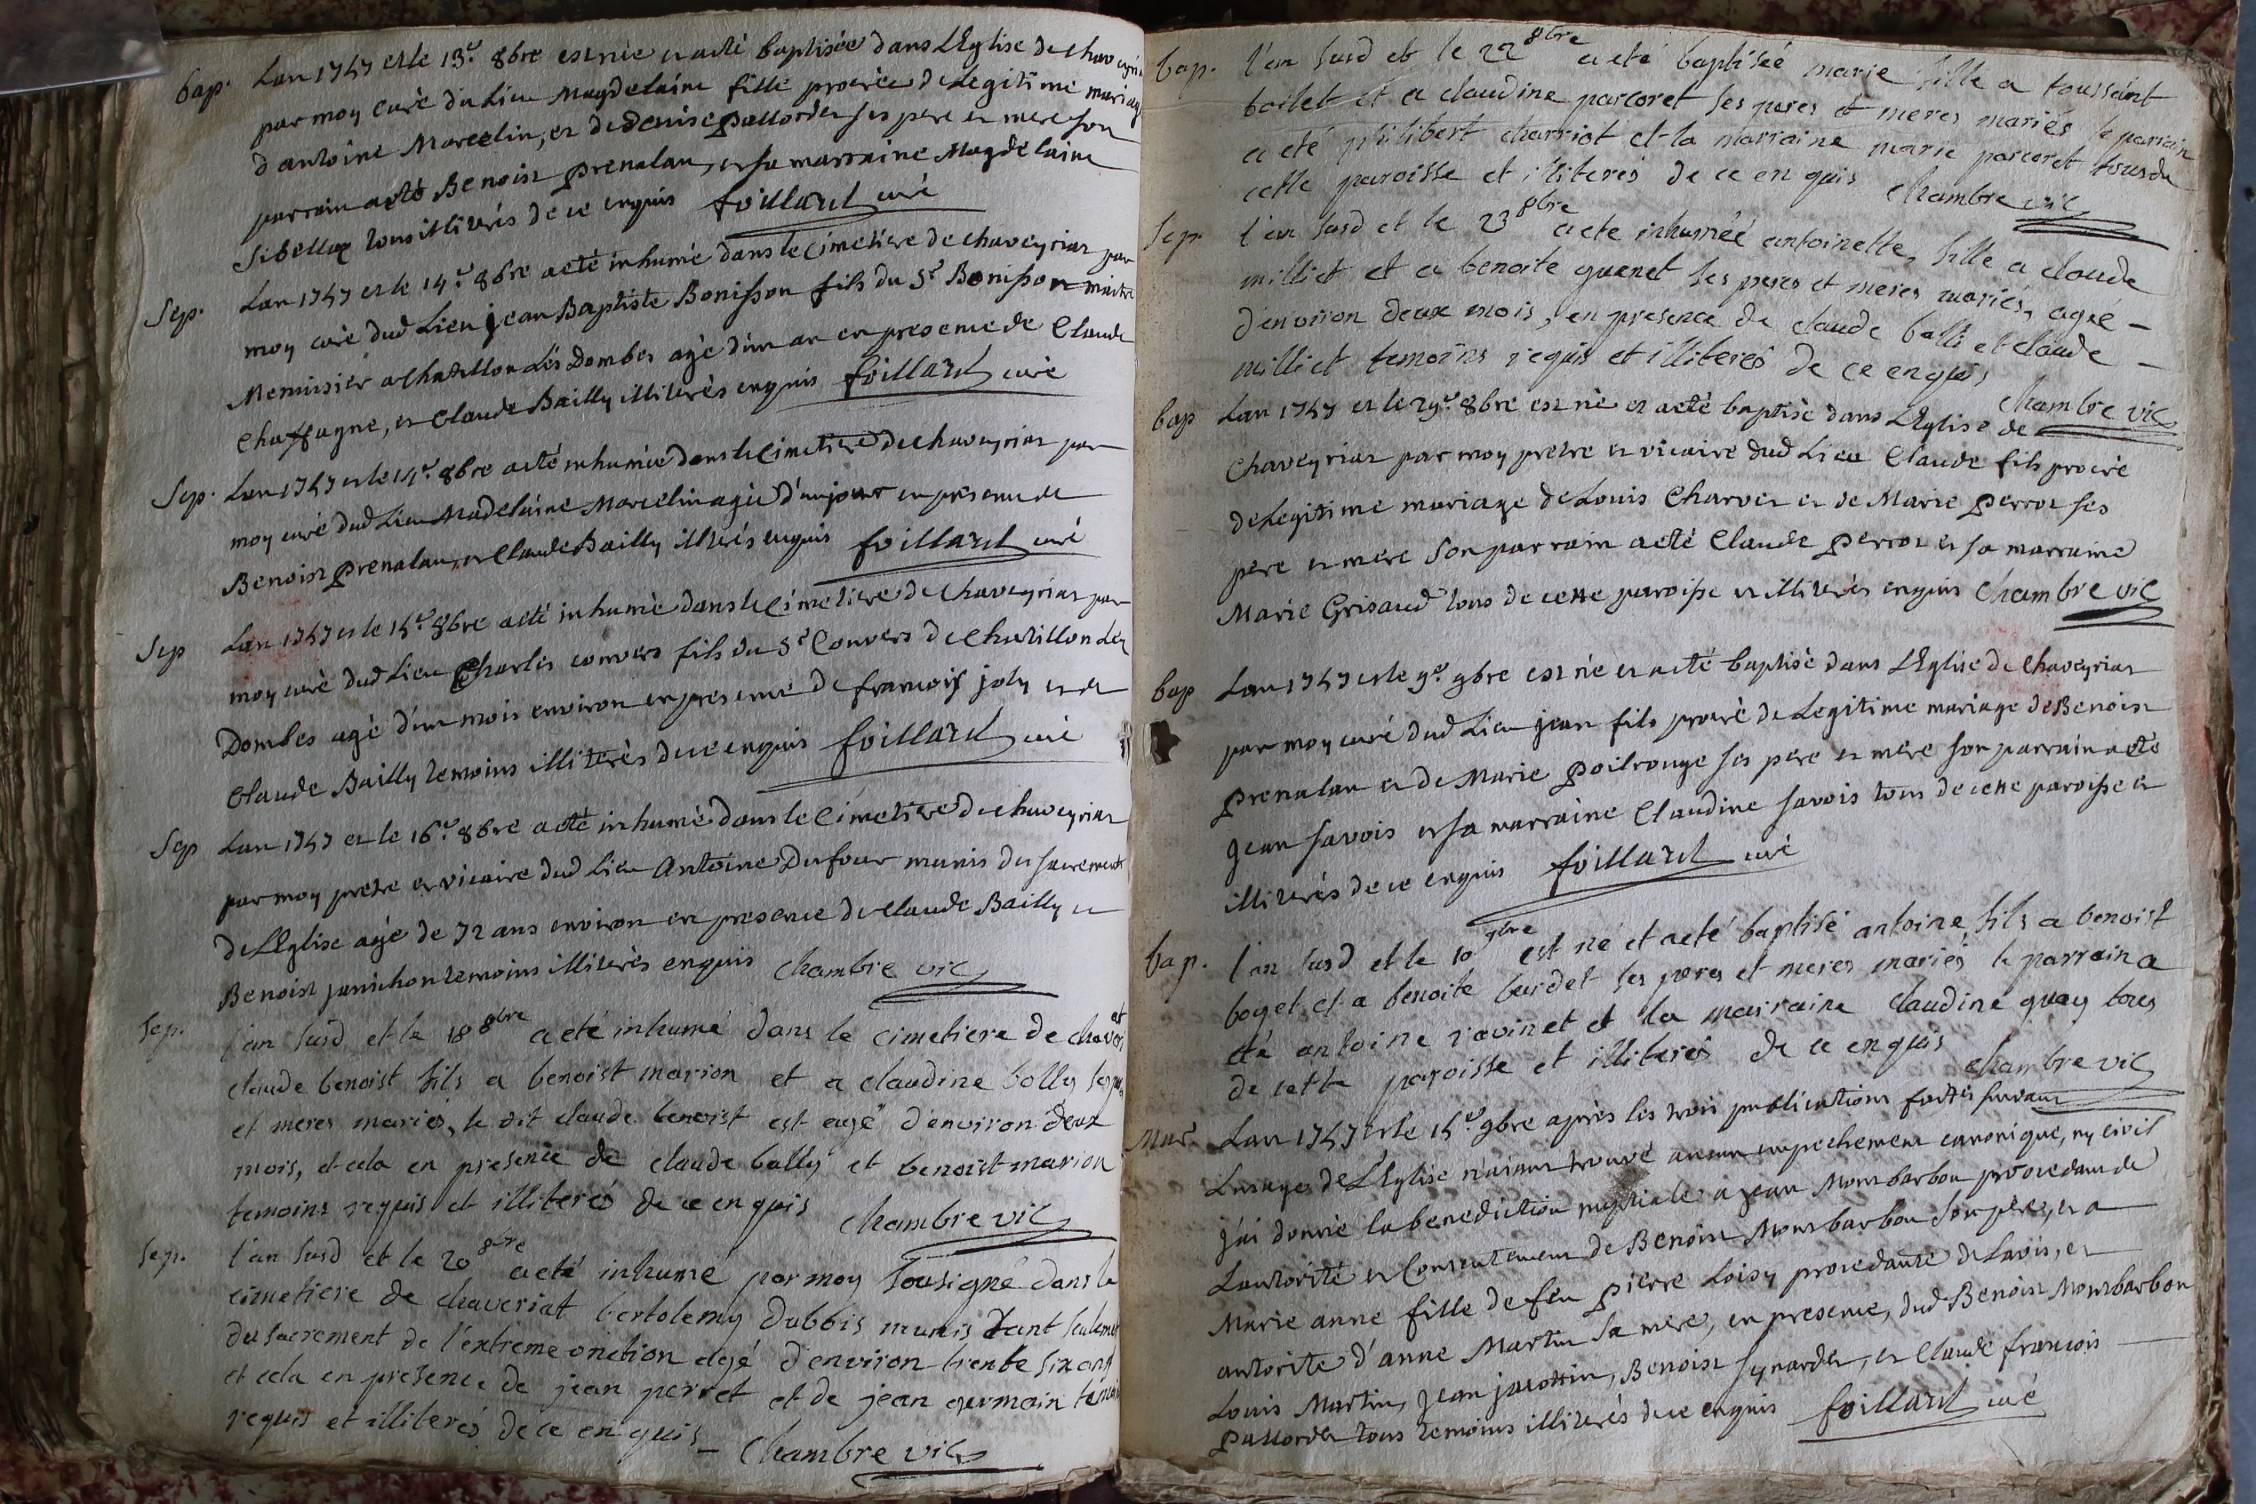 bap. Lan 1747 et le 13e 8bre est née et a eté baptisée dans LEglise de chaveyriat
par moy curé du Lieu Magdelaine fille procréé de Legitime mariage
d'antoine Marcelin, et de denise pallordet ses pere et mere son
parrain a eté Benoist Prenalau, et sa marraine Magdelaine
Sibellas tous illitérés de ce enquis foillard curé
Sep. Lan 1747 et le 14e 8bre a eté inhumé dans le Cimetiere de chaveyriat par
moy curé dud Lieu jean Baptiste Bonisson fils du Sr Bonisson maitre
Menuisier a Chatillon Lès Dombes agé d'un an en presence de Claude
Chaffagne, et Claude Bailly illiterés enquis foillard curé
Sep. Lan 1747 et le 14e 8bre a eté inhumée dans le Cimetiere de chaveyriat par
moy curé dud Lieu Madelaine Marcelin agée d'un jour en presence de
Benoist Prenalau, et Claude Bailly illitérés enquis foillard curé
Sep Lan 1747 et le 15e 8bre a eté inhumé dans le Cimetiere de Chaveyriat par
moy curé dud Lieu Charles convers fils du Sr Convers de Chatillon Les
Dombes agé d'un mois environ en presence de francois joly et de
Claude Bailly temoins illiterés de ce enquis foillard curé
Sep Lan 1747 et le 16e 8bre a eté inhumé dans le Cimetiere de chaveyriat
par moy pretre et vicaire dud Lieu Antoine Dufour munis du sacrements
de LEglise agé de 72 ans environ en presence de Claude Bailly et
Benoist janichon temoins illiterés enquis Chambre vic
Sep. l'an susd et le 18 8bre a eté inhumé dans le cimetiere de chaveriat
claude benoist fils a benoist marion et a claudine bolly ses peres
et meres mariés, le dit claude benoist est agé d'environ deux
mois, et cela en presence de claude bally et benoist marion
temoins requis et illiterés de ce enquis chambre vic
Sep. l'an susd et le 20 8bre a eté inhumé par moy sousigné dans le
cimetiere de chaveriat bertolemy Dubois munis tant seulement
du sacrement de l'extreme onction agé d'environ trente six ans
et cela en presence de jean perret et de jean germain temoins
requis et illiterés de ce enquis chambre vic
bap. l'an susd et le 22 8bre a eté baptisée marie fille a toussaint
boilet et a claudine parcoret ses peres et meres mariés le parrain
a eté philibert charriot et la marraine marie parcoret tous de
cette paroisse et illiterés de ce enquis chambre vic
Sep. l'an susd et le 23 8bre a eté inhumée antoinette, fille a claude
milliet et a benoite guenet ses peres et meres mariés, agée
d'environ deux mois, en presence de claude balli et claude
milliet temoins requis et illiterés de ce enquis
chambre vic
bap Lan 1747 et le 29e 8bre est né et a eté baptisé dans LEglise de
Chaveyriat par moy pretre et vicaire dud Lieu Claude fils procréé
de Legitime mariage de Louis Charvet et de Marie Perrot ses
pere et mere son parrain a eté Claude Perrot et sa marraine
Marie Grisaud tous de cette paroisse et illiterés enquis Chambre vic
bap Lan 1747 et le 9e 9bre est né et a eté baptisé dans LEglise de Chaveyriat
par moy curé dud Lieu jean fils procréé de Legitime mariage de Benoist
Prenalau et de Marie Poilrouge ses pere et mere son parrain a eté
Jean Savois et sa marraine Claudine Savois tous de cette paroisse et
illiterés de ce enquis foillard curé
bap. l'an susd et le 10 9bre est né et a eté baptisé antoine fils a benoist
boget et a benoite burdet ses peres et meres mariés le parrain a
eté antoine ravinet et la marraine claudine guay tous
de cette paroisse et illiterés de ce enquis
chambre vic
Mar. Lan 1747 et le 15e 9bre après les trois publications faites suivant
Lusage de LEglise n'aiant trouvé aucun empechement canonique, ny civil
j'ai donné la benediction nuptiale a jean Montbarbon procedant de
Lautorité et Consentement de Benoist Montbarbon son pere, et a
Marie anne fille de feu Pierre Loisy procedante de Lavis, et
autorité d'anne Martin sa mere, en presence, dud Benoist Montbarbon
Louis Martin, Jean jacottin, Benoist Synardet, et Claude francois
Pallordet tous temoins illiterés de ce enquis foillard curé